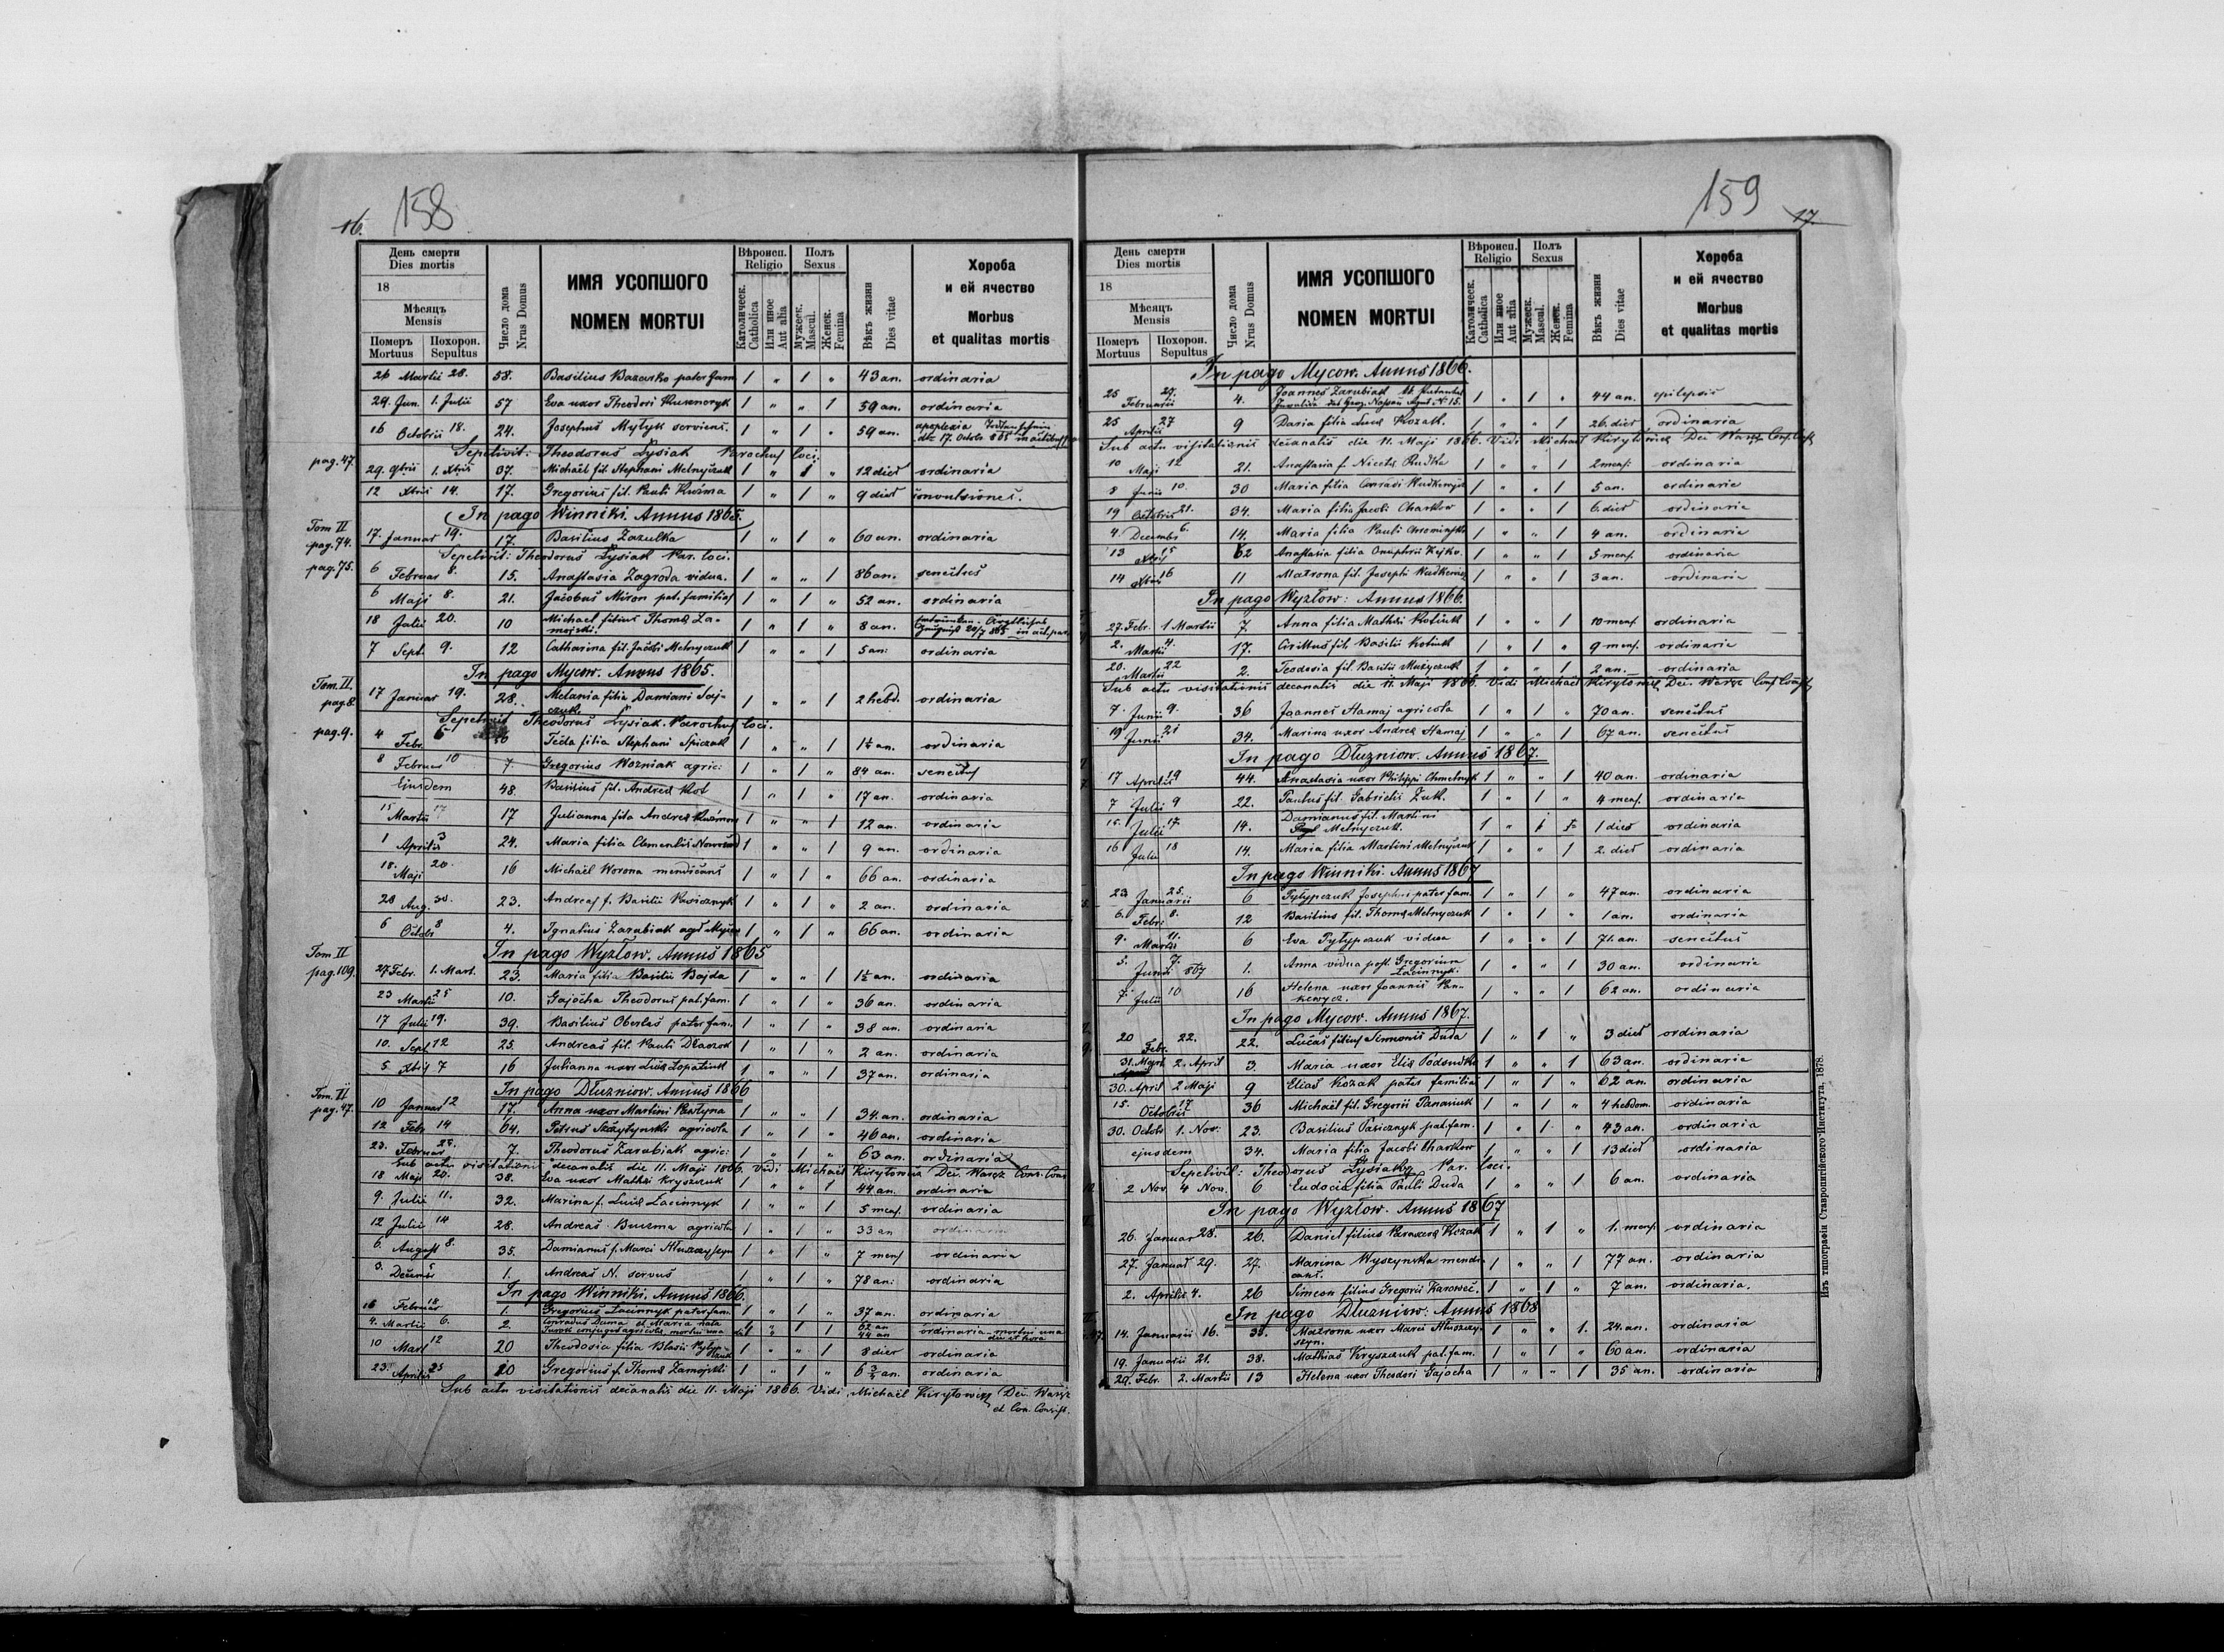 158
16.
День смерти
Dies mortis
18
Мѣсяцъ
Mensis
Померъ Mortuus
Похорон. Sepultus
Число дома
Nrus Domus
ИМЯ УСОПШОГО
NOMEN MORTUI
Вѣроисп.
Religio
Католическ.
Catholica
Или иное
Aut alia
Полъ
Sexus
Мужеск.
Mascul.
Женск.
Femina
Вѣкъ жизни
Dies vitae
Хороба
и ей ячество
Morbus
et qualitas mortis
26 Martii 28. 58. Basilius Bazarko pater fam. 1 " 1 " 43 an. ordinaria
29. Jun. 1. Julii 57 Eva uxor Theodori 1 " " 1 59 an. ordinaria
16 Octobris 18. 24. Josephus Mytyk serviens. 1 " 1 " 59 an. apoplexia
Sepelivit: Theodorus Łysiak Parochus loci:
pag. 47. 29. 9bris 1. Xbris 37. Michaël fil. Stephani Melnyczuk 1 " 1 " 12 dies ordinaria
12 Xbris 14. 17. Gregorius fil. Pauli Kuźma 1 " 1 " 9 dies convulsiones.
In pago Winniki. Annus 1865.
Tom II pag. 74. 17. Januar 19. 17. Basilius Zazulka 1 " 1 " 60 an. ordinaria
Sepelivit: Theodorus Łysiak Par. loci.
pag. 75. 6 Februar 8. 15. Anastasia Zagroda vidua. 1 " " 1 86 an. senectus
6 Maji 8. 21. Jacobus Miron pat. familias 1 " 1 " 52 an. ordinaria
18 Julii 20. 10 Michael filius Thomae Zamojski. 1 " 1 " 8 an.
7 Sept. 9. 12 Catharina fil. Jacobi Melnyczuk 1 " " 1 5 an: ordinaria
In pago Mycow. Annus 1865.
Tom. II. pag. 8. 17 Januar 19. 28. Melania filia Damiani 1 " " 1 2 hebd. ordinaria
Sepelivit Theodorus Łysiak. Parochus loci.
pag. 9. 4 Febr. 6 Tecla filia Stephani Spiczak 1 " " 1 1½ an. ordinaria
8 Februar 10 7. Gregorius Wozniak agric: 1 " 1 " 84 an. senectus
Eiusdem 48. Basilius fil. Andreae Kot 1 " 1 " 17 an. ordinaria
15 Martii 17 17 Julianna filia Andreae 1 " " 1 12 an. ordinaria
1 Aprilis 3 24. Maria filia Clementis 1 " " 1 9 an. ordinaria
18. Maji 20. 16 Michaël Worona mendicans 1 " 1 " 66 an. ordinaria
28 Aug. 30. 23. Andreas f. Basilii Pasicznyk 1 " 1 " 2 an. ordinaria
6 Octobr 8 4. Ignatius Zarubiak 1 " 1 " 66 an. ordinaria
In pago Wyżłow. Annus 1865
Tom II pag. 109. 27 Febr. 1. Mart. 23. Maria filia Basilii Bojda 1 " " 1 1½ an. ordinaria
23 Martii 25 10. Gajocha Theodorus pat. fam. 1 " 1 " 36 an. ordinaria
17 Julii 19. 39. Basilius Oberlas pater fam. 1 " 1 " 38 an. ordinaria
10. Sept 12 25. Andreas fil. Pauli 1 " 1 " 2 an. ordinaria
5 Xbris 7 16 Julianna uxor Lucae Łopatiuk 1 " " 1 37 an. ordinaria
In pago Dłużniow. Annus 1866
Tom. II pag. 47. 10 Januar 12 17. Anna uxor Martini 1 " " 1 34. an. ordinaria
12 Febr 14 64. Petrus agricola 1 " 1 " 46 an. ordinaria
23. Februar 25. 7. Theodorus Zarubiak agric: 1 " 1 " 63 an. ordinaria
Sub actu visitationis decanalis die 11. Maji 1866. Vidi Michaël Kiryłowicz Dec. Waręz Cons. Cons
18 Maji 20. 38. Eva uxor Mathiae Kryszczuk 1 " " 1 44 an. ordinaria
9. Julii 11. 32. Marina f. Lucae Łacinnyk 1 " " 1 5 mens. ordinaria
12 Julii 14 28. Andreas agricola 1 " 1 " 33 an ordinaria
6. August 8. 35. Damianus f. Marci 1 " 1 " 7 mens ordinaria
3. Decembr 5 1. Andreas N. servus 1 " 1 " 78 an: ordinaria
In pago Winniki. Annus 1866.
16 Februar 18 1. Gregorius Łacinnyk pater fam. 1 " 1 " 37 an. ordinaria
4. Martii 6. 2. Conradus Duma et Maria nata 62 an 44 an ordinaria - mortui una die et hora
10 Mart 12 20 Theodosia filia Blasii 1 " " 1 8 dies ordinaria
23. Aprilis 25 20 Gregorius f. Thomae Zamojski 1 " 1 " ordinaria
Sub actu visitationis decanalis die 11. Maji 1866. Vidi Michaël Kiryłowicz Dec. Waręz
et Con. Consist.
159
17.
День смерти
Dies mortis
18
Мѣсяцъ
Mensis
Померъ Mortuus
Похорон. Sepultus
Число дома
Nrus Domus
ИМЯ УСОПШОГО
NOMEN MORTUI
Вѣроисп.
Religio
Католическ.
Catholica
Или иное
Aut alia
Полъ
Sexus
Мужеск.
Mascul.
Женск.
Femina
Вѣкъ жизни
Dies vitae
Хороба
и ей ячество
Morbus
et qualitas mortis
In pago Mycow. Annus 1866.
25 Februarii 27. 4. Joannes Zarubiak 1 " 1 " 44 an. epilepsis
25 Aprilis 27 9 Daria filia Lucae Kozak. 1 " " 1 26. dies ordinaria
Sub actu visitationis decanalis die 11. Maji 1866. Vidi Michaël Kiryłowicz Dec. Waręz
10 Maji 12 21. Anastasia f. Nicetae 1 " " 1 2 mens: ordinaria
8 Junii 10. 30 Maria filia Conradi 1 " " 1 5 an. ordinaria
19 Octobris 21. 34. Maria filia Jacobi Charkow 1 " " 1 6. dies ordinaria
4 Decembr 6. 14. Maria filia Pauli 1 " " 1 4 an. ordinaria
13 Xbris 15 62 Anastasia filia Onuphrii Kejko. 1 " " 1 3 mens. ordinaria
14 Xbris 16 11 Matrona fil. Josephi 1 " " 1 3 an. ordinaria
In pago Wyżłow: Annus 1866.
27. Febr. 1 Martii 7 Anna filia Mathaei Kotiuk 1 " " 1 10 mens ordinaria
2. Martii 4. 17. Cirillus fil. Basilii Kotiuk 1 " 1 " 9 mens. ordinaria
20. Martii 22 2. Teodosia fil. Basilii Muzyczuk 1 " " 1 2 an. ordinaria
Sub actu visitationis decanalis die 11. Maji 1866. Vidi Michaël Kiryłowicz Dec. Waręz
7. Junii 9. 36 Joannes Hamaj agricola 1 " 1 " 70 an. senectus
19 Junii 21 34. Marina uxor Andreae Hamaj 1 " " 1 67 an. senectus
In pago Dłużniow. Annus 1867.
17 Aprilis 19 44. Anastasia uxor Philippi Chmelnyk 1 " " 1 40 an. ordinaria
7 Julii 9 22. Paulus fil. Gabrielis Zuk. 1 " 1 " 4 mens. ordinaria
15. Julii 17 14. Damianus fil. Martini Melnyczuk. 1 " 1 1 dies ordinaria
16 Julii 18 14. Maria filia Martini Melnyczuk 1 " " 1 2. dies ordinaria
In pago Winniki. Annus 1867
23 Januarii 25. 6 Pyłypczuk Josephus pater fam. 1 " 1 " 47 an. ordinaria
6. Febr. 8. 12 Basilius fil. Thomae Melnyczuk 1 " 1 " 1 an. ordinaria
9. Martii 11. 6 Eva Pyłypczuk vidua 1 " " 1 71. an. senectus
5. Junii 7. 867 1. Anna vidua post Gregorium Łacinnyk. 1 " " 1 30 an. ordinaria
7. Julii 10 16 Helena uxor Joannis Pankewycz. 1 " " 1 62 an. ordinaria
In pago Mycow. Annus 1867.
20 Febr. 22. 22. Lucas filius Simeonis Duda 1 " 1 " 3 dies ordinaria
31. Mart. 2. April 3. Maria uxor Eliae 1 " " 1 63 an. ordinaria
30. April 2 Maji 9 Elias Kozak pater familias 1 " 1 " 62 an. ordinaria
15. Octobris 17 36 Michaël fil. Gregorii Panasiuk 1 " 1 " 4 hebdom. ordinaria
30. Octobr. 1. Nov. 23. Basilius Pasicznyk pat. fam. 1 " 1 " 43 an. ordinaria
ejusdem 34. Maria filia Jacobi Charkow 1 " " 1 13 dies ordinaria
Sepelivit: Theodorus Łysiak Par. loci.
2 Nov. 4 Nov. 6 Eudocia filia Pauli Duda 1 " " 1 6 an. ordinaria
In pago Wyżłow. Annus 1867
26. Januar 28. 26. Daniel filius Kozak 1 " 1 " 1. mens. ordinaria
27. Januar 29. 27. Marina Wyszynska mendicans. 1 " " 1 77 an. ordinaria
2. Aprilis 4. 26 Simeon filius Gregorii 1 " 1 " 7 an. ordinaria.
In pago Dłużniow. Annus 1868
14. Januarii 16. 38. Matrona uxor Marci 1 " " 1. 24. an. ordinaria
19. Januarii 21. 38. Mathias Kryszczuk pat. fam. 1 " 1 " 60 an. ordinaria
29. Febr. 2. Martii 13 Helena uxor Theodori Gajocha 1 " " 1 35 an. ordinaria
Изъ типографіи Ставропигійского Института. 1878.